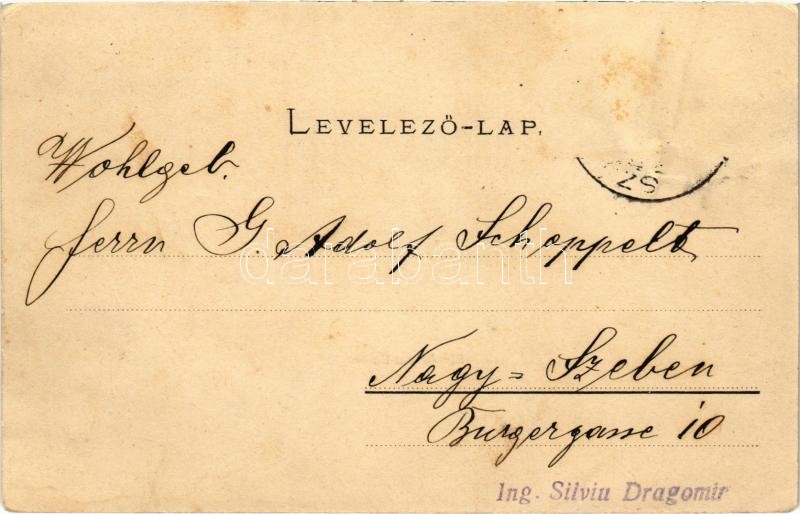 LEVELEZŐ-LAP.
Wohlgeb.
Herrn G. Adolf Schoppelt
darabanth
Nagy=Szeben
Burgergasse 10
Ing. Silviu Dragomir